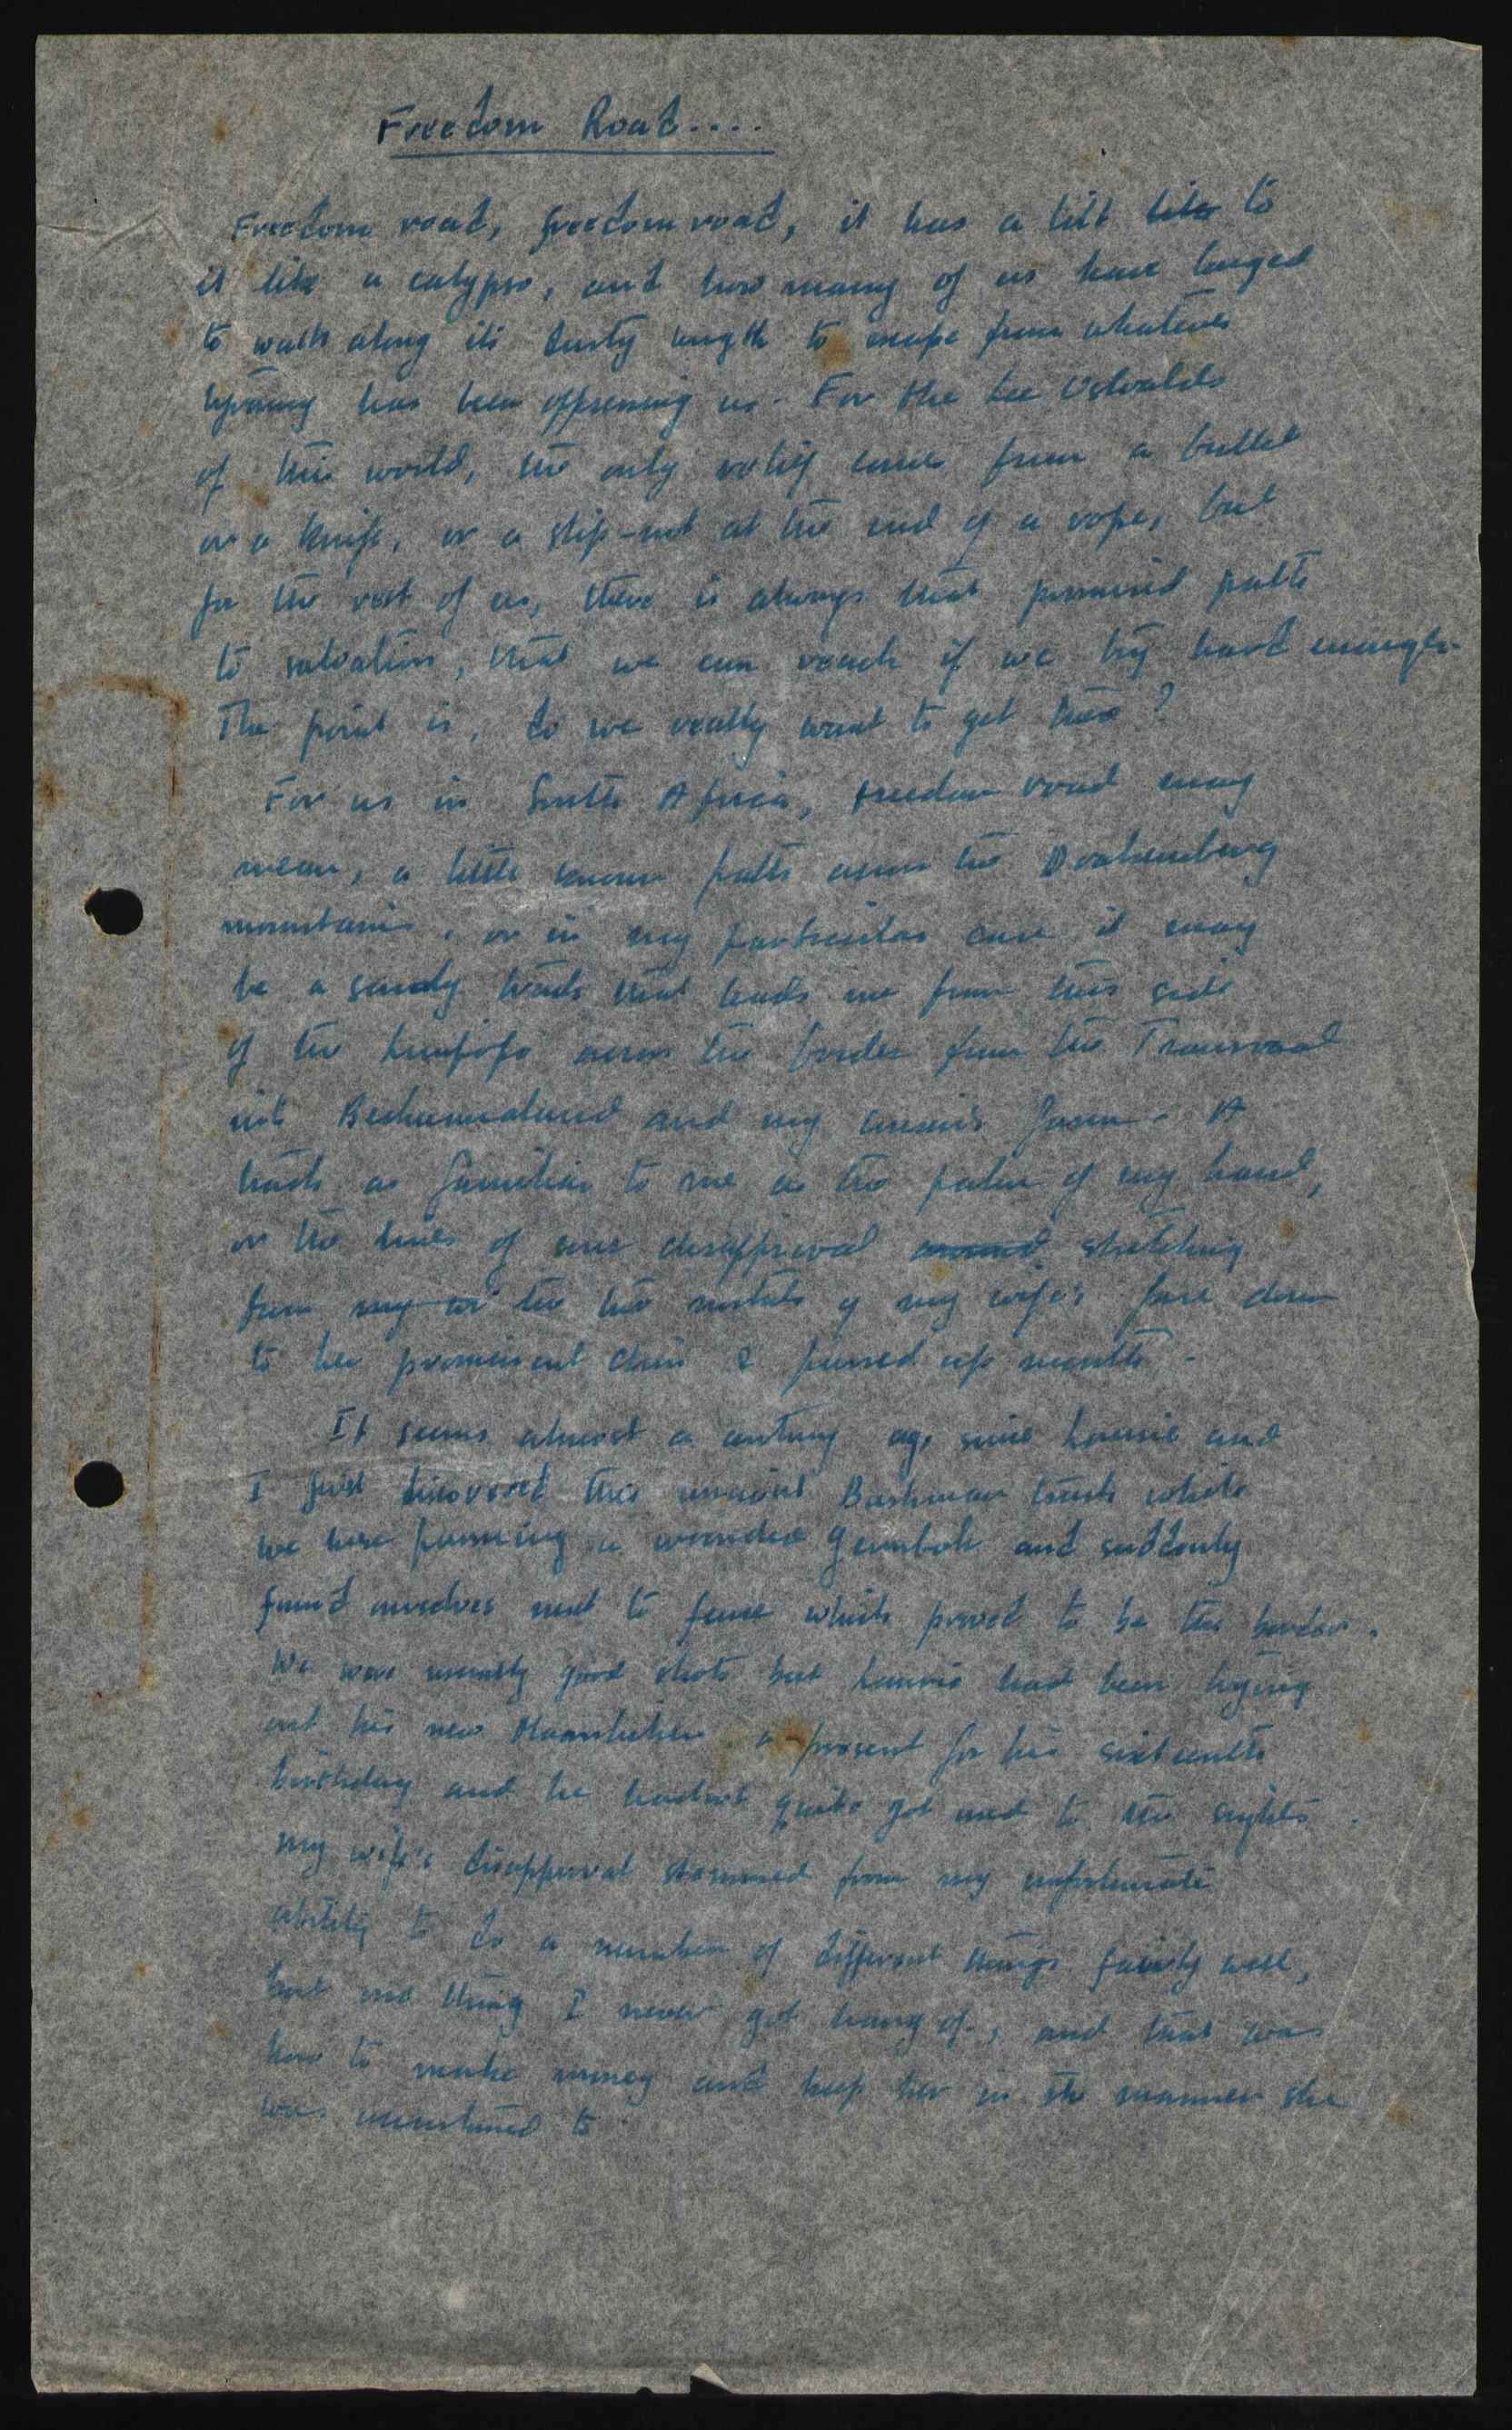 Freedom Road....
Freedom road, freedom road, it has a lilt like to
it like a calypso, and how many of us have longed
to walk along its dusty length to escape from whatever
tyranny has been oppressing us. For the Lee Oswalds
of this world, the only relief comes from a bullet
or a knife, or a slip-knot at the end of a rope, but
for the rest of us, there is always that promised path
to salvation, that we can reach if we try hard enough.
The point is, do we really want to get there?
For us in South Africa, freedom road may
mean, a little known path across the Drakensberg
mountains, or in my particular case it may
be a sandy track that leads me from this side
of the Limpopo across the border from the Transvaal
into Bechuanaland and my cousin's farm. A
track as familiar to me as the palm of my hand,
or the lines of disapproval around stretching
from my the the nostrils of my wife's face down
to her prominent chin & pursed up mouth.
It seems almost a century ago since Lourie and
I first discovered this ancient Bushman track while
we were pursuing a wounded Gemsbok and suddenly
found ourselves next to fence which proved to be the border.
We were usually good shots but Lourie had been trying
out his new Mannlicher a present for his sixteenth
birthday and he hadnt quite got used to the sights.
My wife's disapproval stemmed from my unfortunate
ability to do a number of different things fairly well,
but one thing I never got hang of, and that was
how to make money and keep her in the manner she
was accustomed to